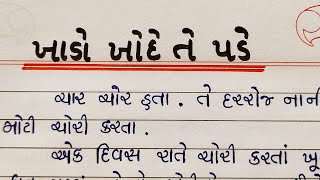 ખાડો ખોદે તે પડે
ચાર ચોર હતા. તે દરરોજ નાની
મોટી ચોરી કરતા.
એક દિવસ રાતે ચોરી કરતાં ખૂ